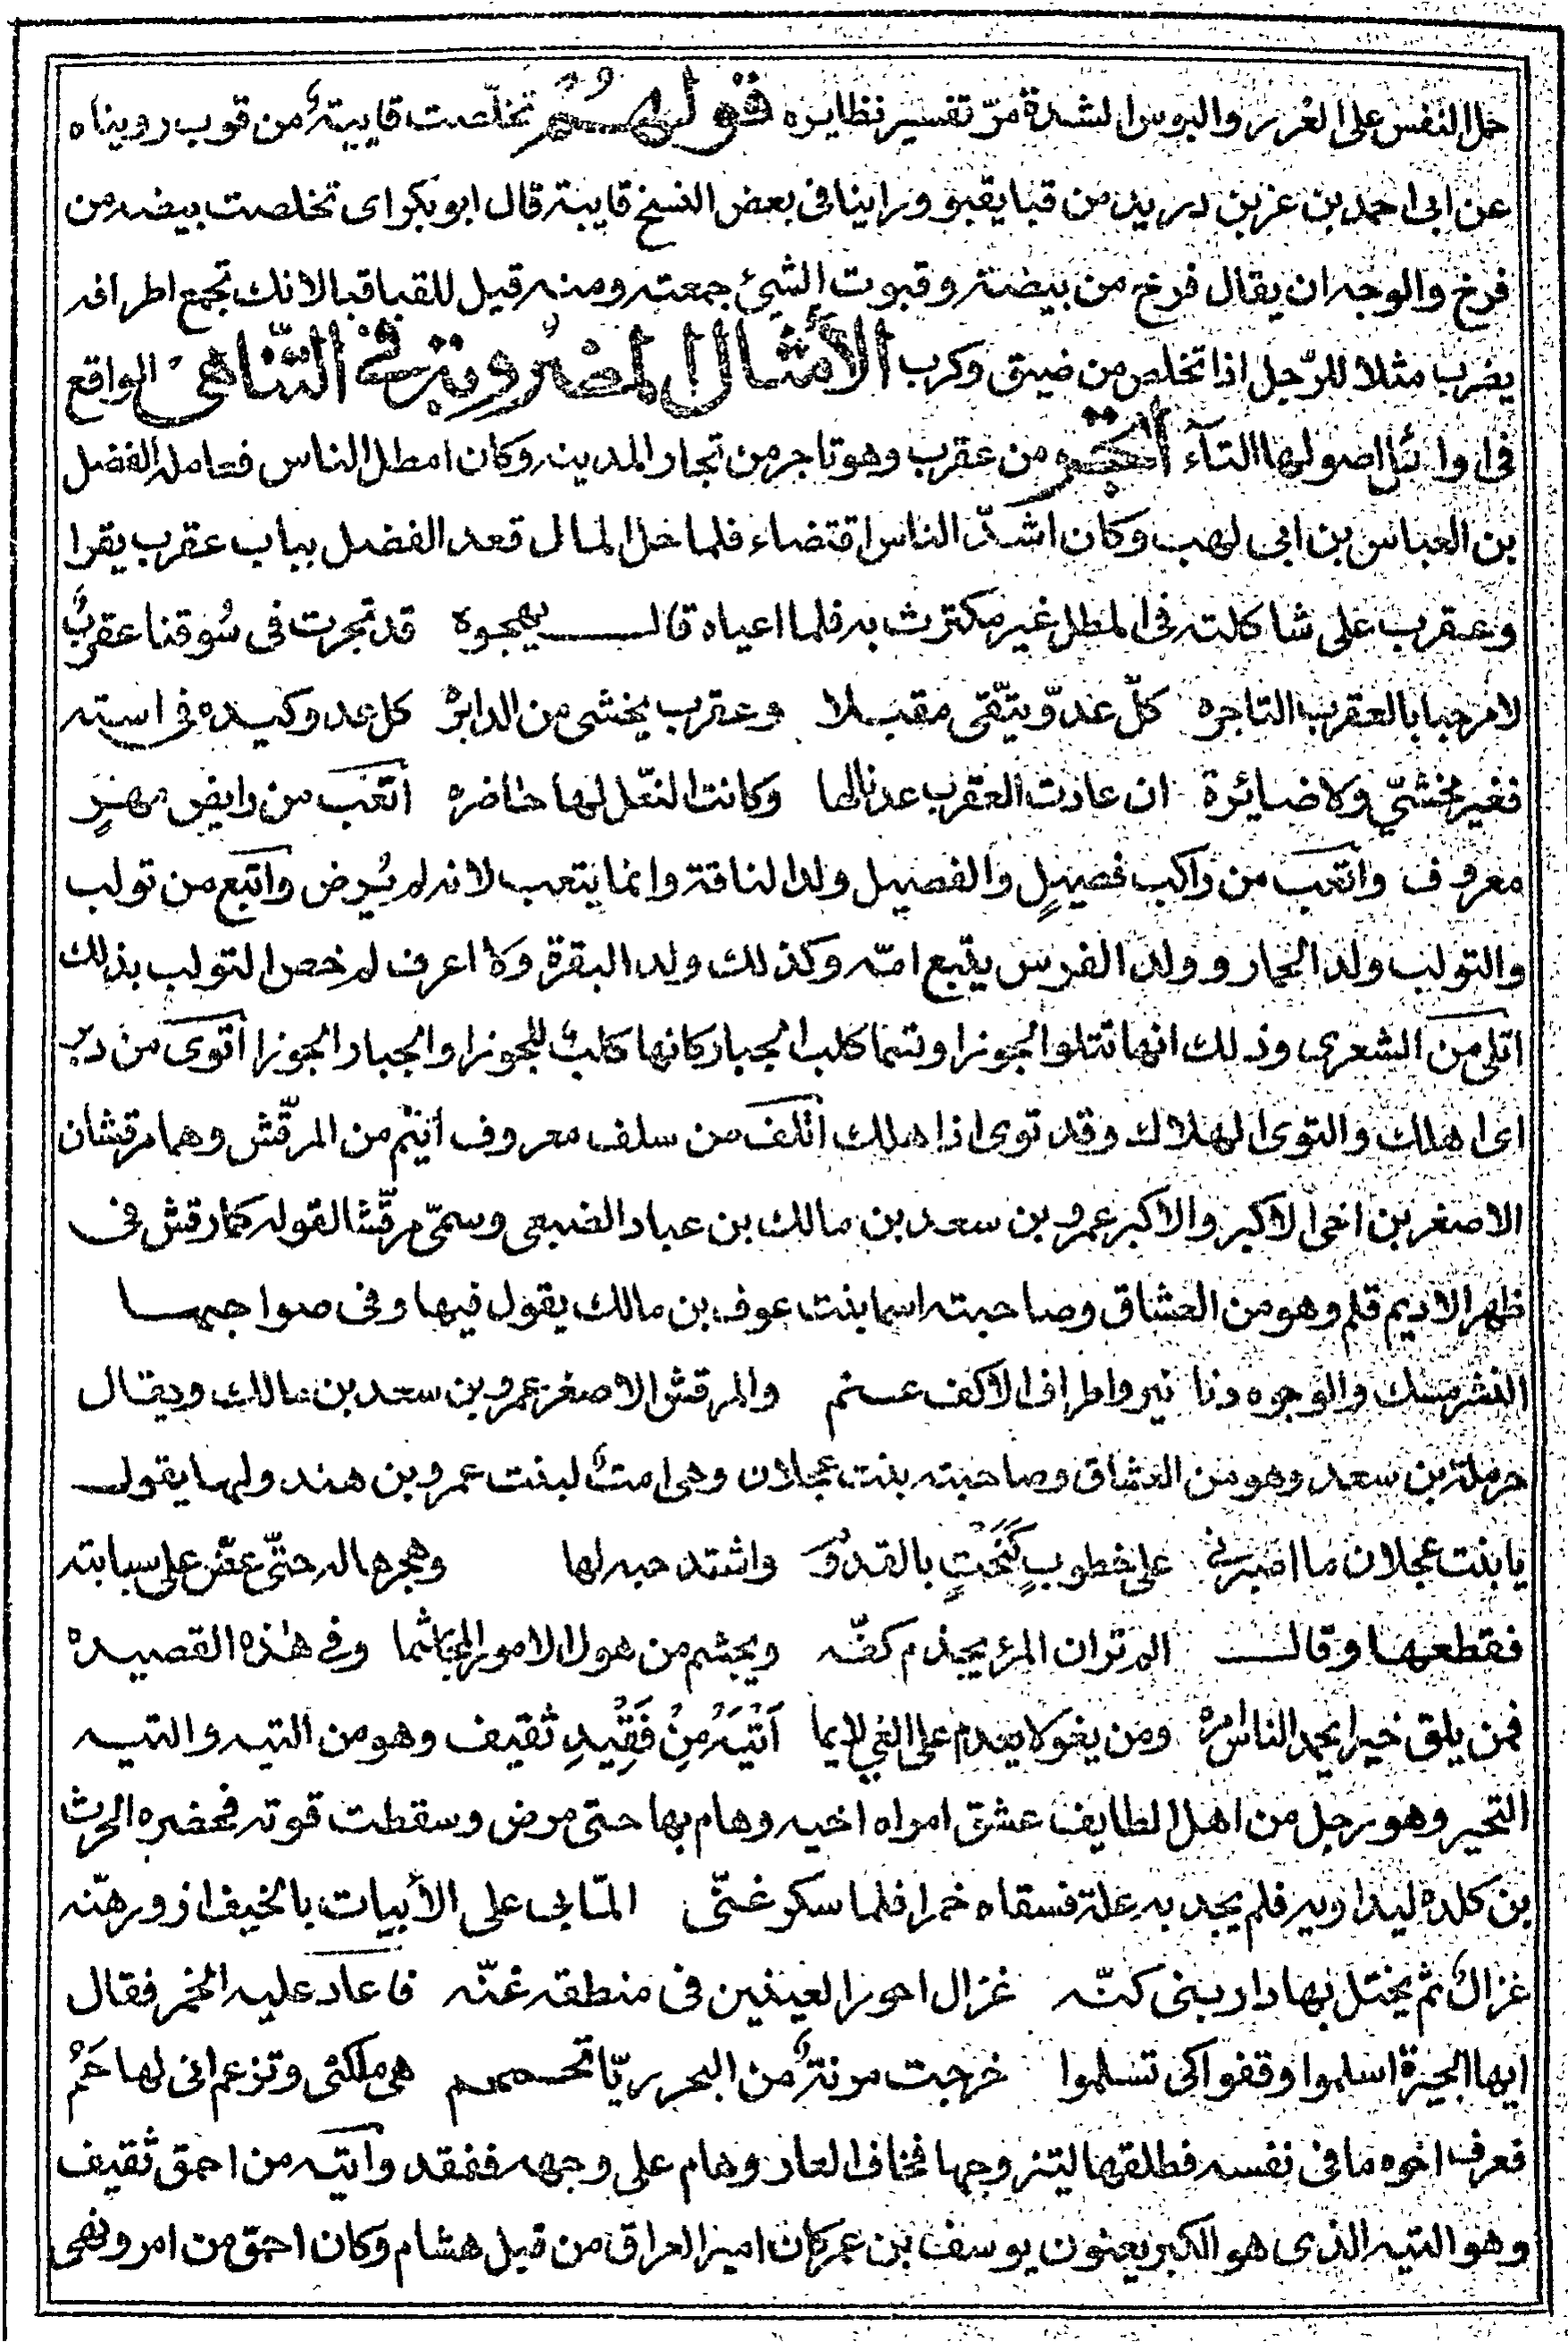 حمل النفس على الغرر والبوس الشدة مرّ تفسير نظايره قولهم تخلّصت قايبةٌ من قوب رويناه
عن ابى احمد بن عن بن دريد من قبا يقبو وراينا فى بعض النسخ قايبة قال ابو بكر اى تخلصت بيضه من
فرخ والوجه ان يقال فرخ من بيضته وقبوت الشئ جمعته ومنه قيل للقبا قبا لانك تجمع اطرافه
يضرب مثلا للرّجل اذا تخلص من ضيق وكرب الأمثال المضروبة فى التّناهى الواقع
فى اوائل اصولها التآء أتجر من عقرب وهو تاجر من تجار المدينه وكان امطل الناس فعامله الفضل
بن العباس بن ابى لهب وكان اشدّ الناس اقتضاء فلما حل المال قعد الفضل بباب عقرب يقرا
وعقرب على شاكلته فى المطل غير مكترث به فلما اعياه قال يهجوه قد تجرت فى سُوقنا عقربٌ
لا مرحبا بالعقرب التاجره كلّ عدوّ يتّقى مقبلا وعقرب يخشى من الدابرهْ كل عدو كيده فى استه
فغير مخشيّ ولا ضايرة ان عادت العقرب عدنا لها وكانت النّعل لها حاضره أتعب من رايض مهرٍ
معروف وأتعب من راكب فصيلٍ والفصيل ولد الناقة وانما يتعب لانه لم يُرض وأتبع من تولب
والتولب ولد الحمار وولد الفرس يتبع امّه وكذلك ولد البقرة ولا اعرف لم خص التولب بذلك
اتلى من الشعرى وذلك انها تتلو الجوزا وتسما كلب الجبار كانها كلبٌ للجوزا والجبار الجوزا أتوى من دبر
اى اهلك والتوى الهلاك وقد توى اذا هلك أتلف من سلف معروف أتيم من المرقّش وهما مرقشان
الاصغر بن اخى الاكبر والاكبر عمرو بن سعد بن مالك بن عباد الضبعى وسمّى مرقّشا لقوله كما رقش فى
ظهر الاديم قلم وهو من العشاق وصاحبته اسما بنت عوف بن مالك يقول فيها وفى صواحبها
النشر مسك والوجوه دنا نير واطراف الاكف عنم والمرقش الاصغر عمرو بن سعد بن مالك ويقال
حرملة بن سعد وهو من العشاق وصاحبته بنت عجلان وهى امةٌ لبنت عمرو بن هند ولها يقول
يا بنت عجلان ما اصبرنى على خطوبٍ كنَحْتٍ بالقدوُمْ واشتد حبه لها وهجرها له حتّى عضّ على سبابته
فقطعها وقال الم تر ان المرء يجذم كفّه ويجشم من هول الامور المجاشما وفى هذه القصيده
فمن يلق خيرا يحمد الناس امره ومن يغو لا يعدم على الغي لايما أَتْيَهُ مِنْ فَقِيدِ ثقيف وهو من التيه والتيه
التحير وهو رجل من اهل الطايف عشق امراه اخيه وهام بها حتى مرض وسقطت قوته فحضره الحرث
بن كلدة ليداويه فلم يجد به علة فسقاه خمرا فلما سكر غنّى المّا بى على الأبيات بالخيف ازورهنّه
غزالٌ ثم يختل بها دار بنى كنّه غزال احور العينين فى منطقه غنّه فاعاد عليه الخمر فقال
ايها الجيرة اسلموا وقفوا كى تسلموا خرجت مزنةٌ من البحر ريّا تحمحم هى ملكتى وتزعم انى لها حَمُ
فعرف اخوه ما فى نفسه فطلقها لتزوجها فخاف العار وهام على وجهه ففقد وأتيه من احمق ثقيف
وهو التيه الذى هو الكبر يعنون يوسف بن عمر كان امير العراق من قبل هشام وكان احمق من امر ونهى